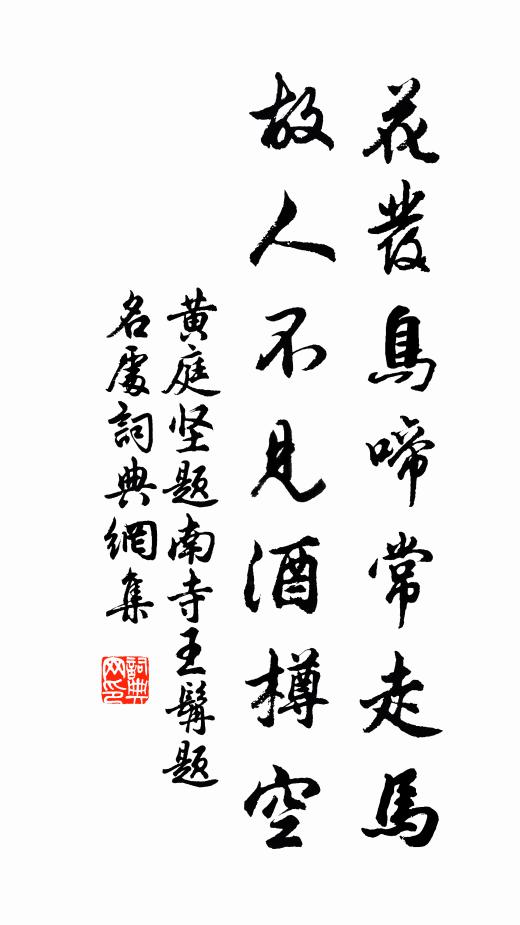 花發鳥啼常走馬
故人不見酒樽空
黄庭坚题南寺王髯题
名處詞典網集
詞典網